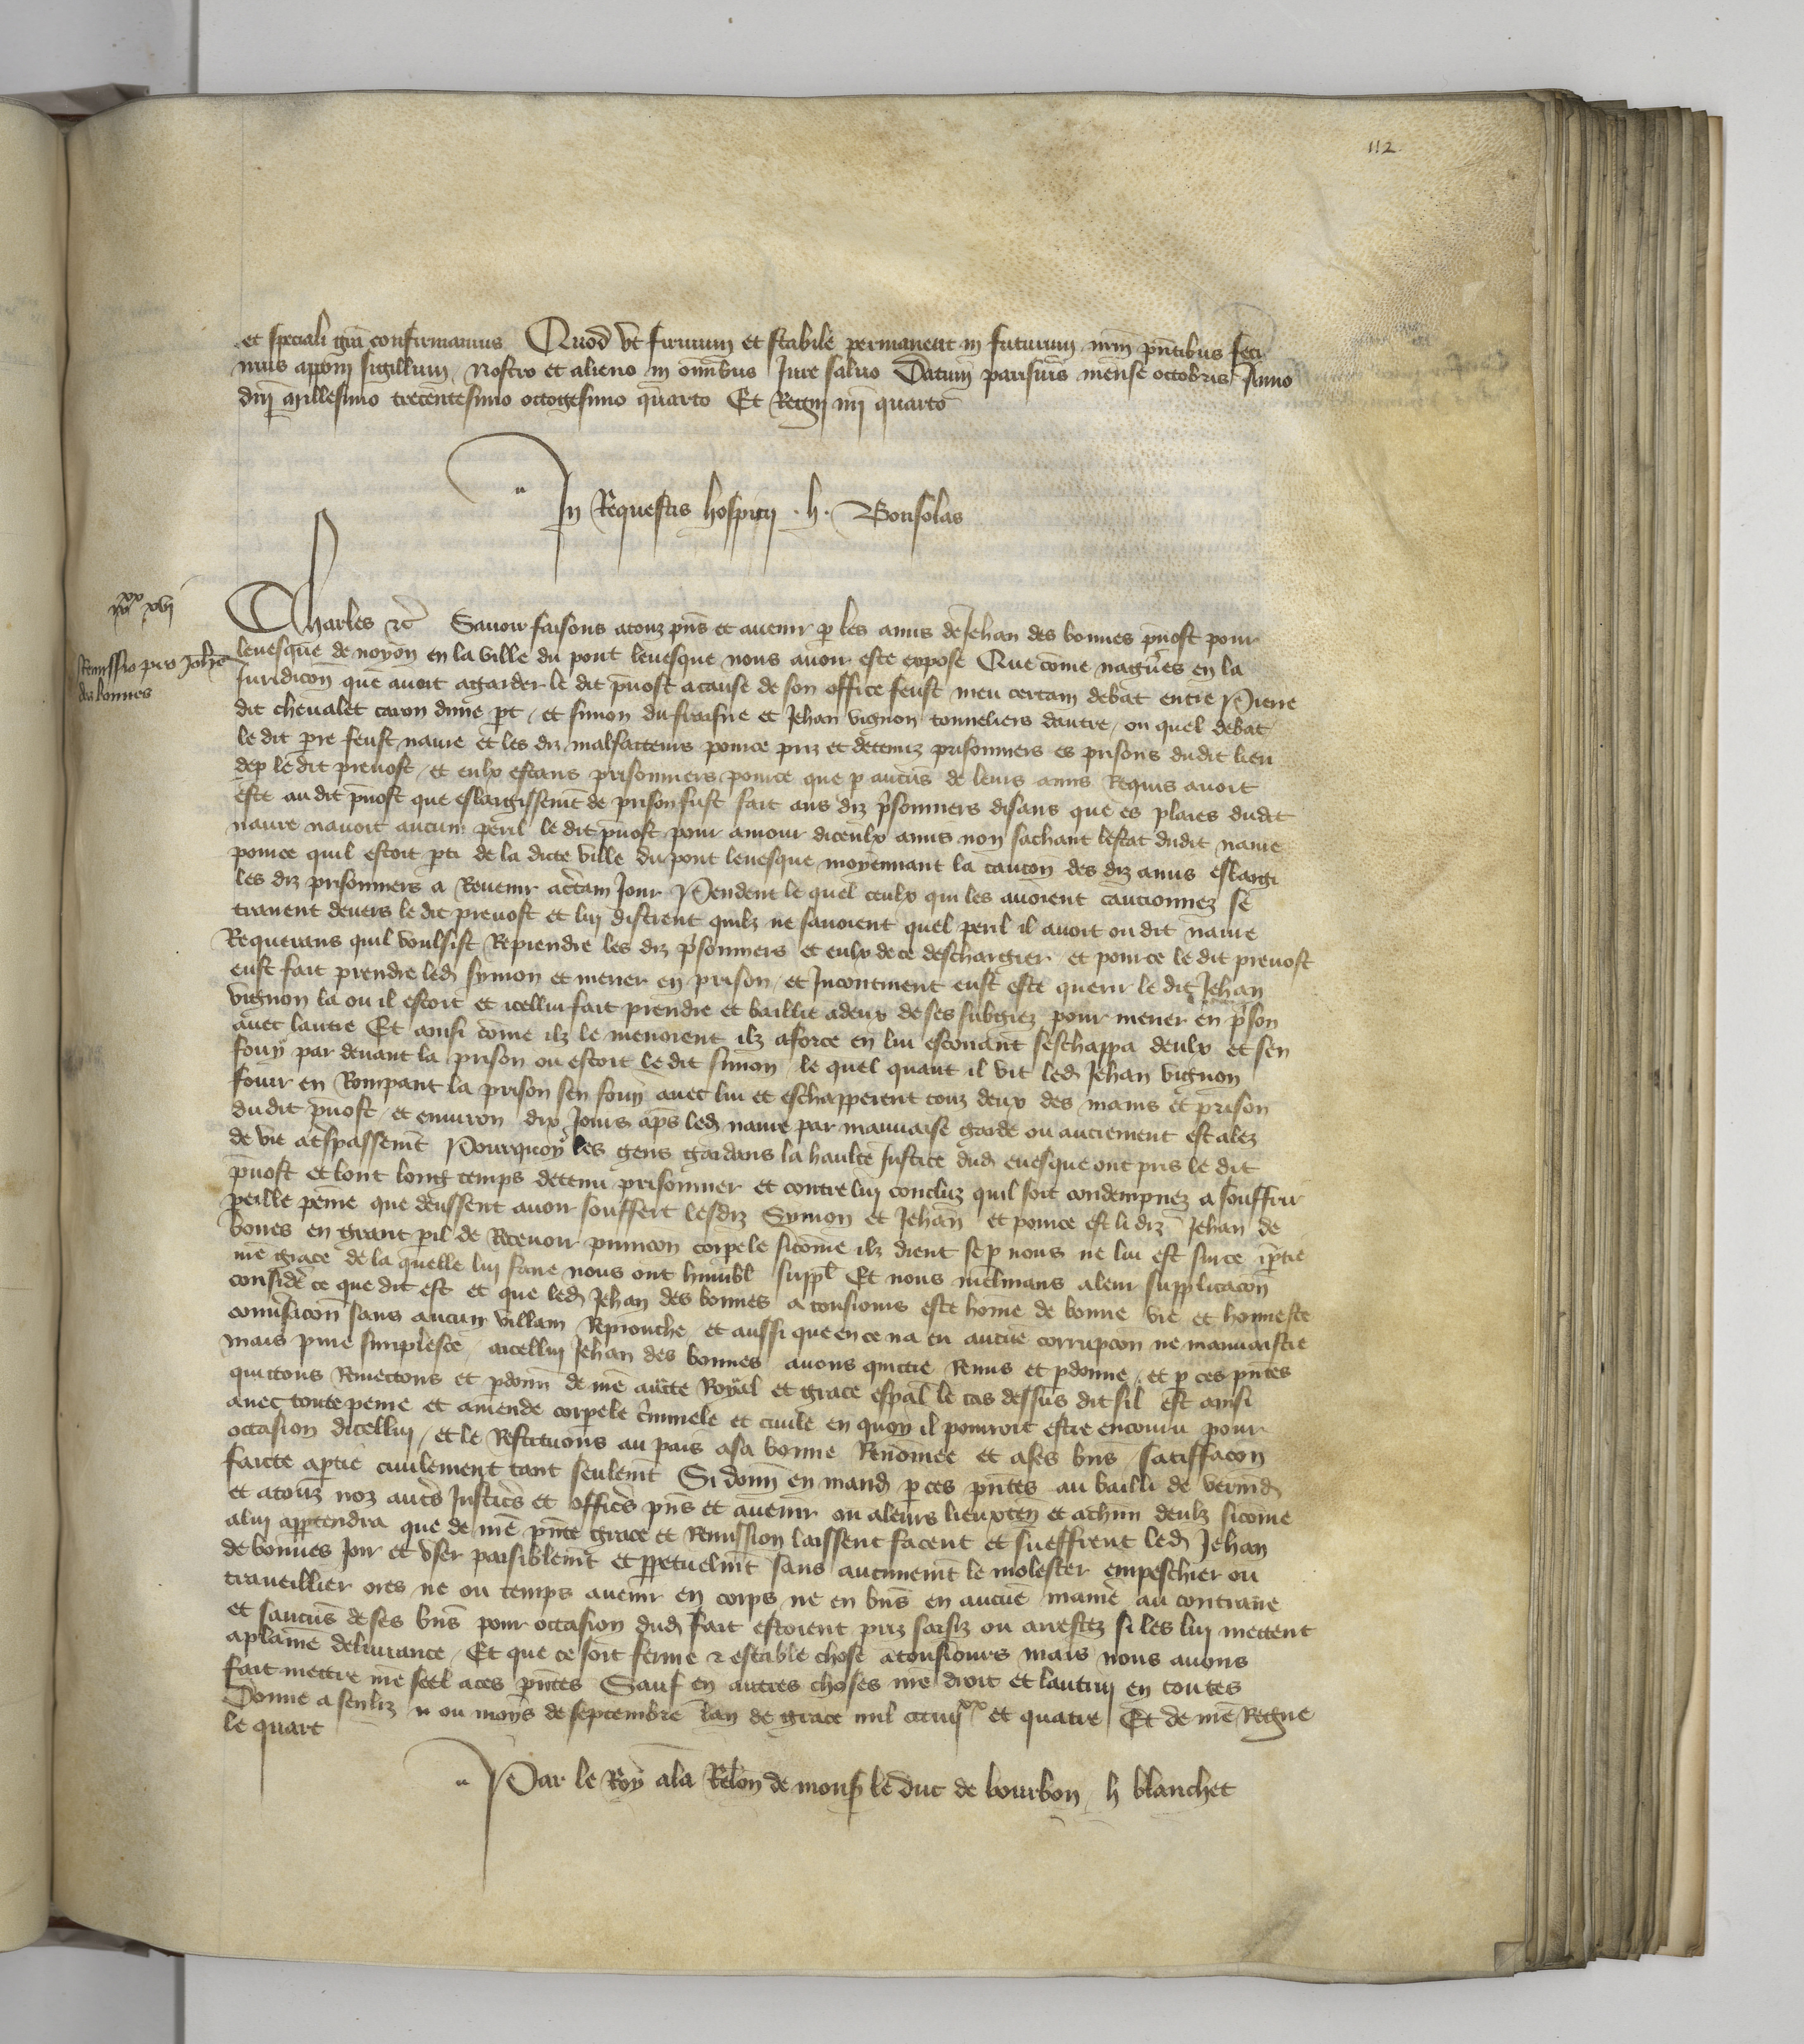 112
et speciali grā confirmamus Quod vt firmum et stabile permaneat in futurum nrm̄ pn̄tibus feci
mus appōni sigillum nostro et alieno in om̄ībus Jure saluo Datum parisius mense octobris Anno
dn̄i millesimo trecentesimo octogesimo quarto Et Regni nr̄i quarto
In Requestis hospicij . h . Bonsolas
iiijxx xvj
Remissio pro Johē
des bonnes
Charles etc̄ Sauoir faisons atouz pn̄s et auenir p les amis de Jehan des bonnes pūost pour
leuesque de noyon en la ville du pont leuesque nous auoir este expose Que cōme nagūes en la
Juridicōn que auoit agarder le dit pūost acause de son office feust meu certain debat entre Pierre
dit cheualet caron dune pt / et simon du fraisne et Jehan vignon tonneliers dautre / ou quel debat
le dit pre feust naure et les diz malfacteurs pource priz et detenuz prisonniers es prisons dudit lieu
dep le dit preuost / et eulx estans prisonniers pource que p aucūs de leurs amis Requis auoit
este au dit pūost que eslargissemt de prison fust fait aus diz p̄sonniers disans que es plaies dudit
naure nauoit aucun peril le dit pūost pour amour diceulx amis non sachant lestat dudit naure
pource quil estoit pti de la dicte ville du pont leuesque moyennant la caucōn des diz amis eslargi
les diz prisonniers a Reuenir actain Jour Pendent le quel ceulx qui les auoient caucionnez se
trairent deuers le dit preuost et lui distrent quilz ne sauoient quel peril il auoit ou dit naure
Requerans quil voulsist Reprendre les diz p̄sonniers et eulx de ce deschargier et pource le dit preuost
eust fait prendre led Symon et mener en prison / et Incontinent eust este querir le dit Jehan
vignon la ou il estoit et icellui fait prendre et baillie adeux de ses subgiez pour mener en p̄son
auec lautre Et ainsi cōme ilz le menoient ilz aforce en lui escouant seschappa deulx et sen
fouy par deuant la prison ou estoit le dit simon / le quel quant il vit led Jehan vignon
fouir en Rompant la prison sen fouy auec lui et eschapperent touz deux des mains et prison
dudit pūost / et enuiron dix Jours aps led naure par mauuaise garde ou autrement est alez
de vie atspassemt Pourquoy les gens gardans la haulte Justice dud euesque ont pris le dit
pūost et lont long temps detenu prisonnier et contre lui concluz quil soit condempnez a souffrir
peille peine que deussent auoir souffert lesdiz Symon et Jehan et pource est li diz Jehan de
bones en grant pil de Receuoir punicōn corpele sicōme ilz dient se p nous ne lui est sur ce iptie
nre grace de la quelle lui faire nous ont humbl suppl Et nous inclinans aleur supplicacōn
considē ce que dit est et que led Jehan des bonnes a tousiours este hōme de bonne vie et honneste
conūsacōn sans aucun villain Reprouche / et aussi que en ce na eu aucūe corrupcōn ne mauuaistie
mais pure simplesce / aicellui Jehan des bonnes auons quictie Remis et pdonne / et p ces pn̄tes
quictons Remectons et pdonn de nrē auctte Royal et grace espāl le cas dessus dit sil est ainsi
auec toute peine et amende corpele c̄minele et ciuile en quoy il pourroit estre encouru pour
occasion dicellui / et le Restituons au pais asa bonne Renōmee et ases bn̄s satiffacōn
faicte aptie ciuilement tant seulemt Si donn en mand p ces pn̄tes au bailli de vermd
et atouz noz autēs Justicēs et officēs pn̄s et auenir ou aleurs lieuxten et achūn deulz sicōme
alui apptendra que de nrē pn̄te grace et Remission laissent facent et sueffrent led Jehan
de bonnes Joir et vser paisiblemt et ppetuelmt sans aucunemt le molester empeschier ou
traueillier ores ne ou temps auenir en corps ne en bn̄s en aucūe maniē au contraire
et saucūs de ses bn̄s pour occasion dud fait estoient priz saisiz ou arrestez si les lui mettent
aplainē deliurance / Et que ce soit ferme et estable chose atousiours mais nous auons
fait mettre nrē seel aces pn̄tes Sauf en autres choses nrē droit et lautrui en toutes
Donne a senliz ou moys de septembre lan de grace mil ccciiijxx et quatre Et de nrē Regne
le quart
Par le Roy ala Relōn de mons le duc de bourbon / h blanchet